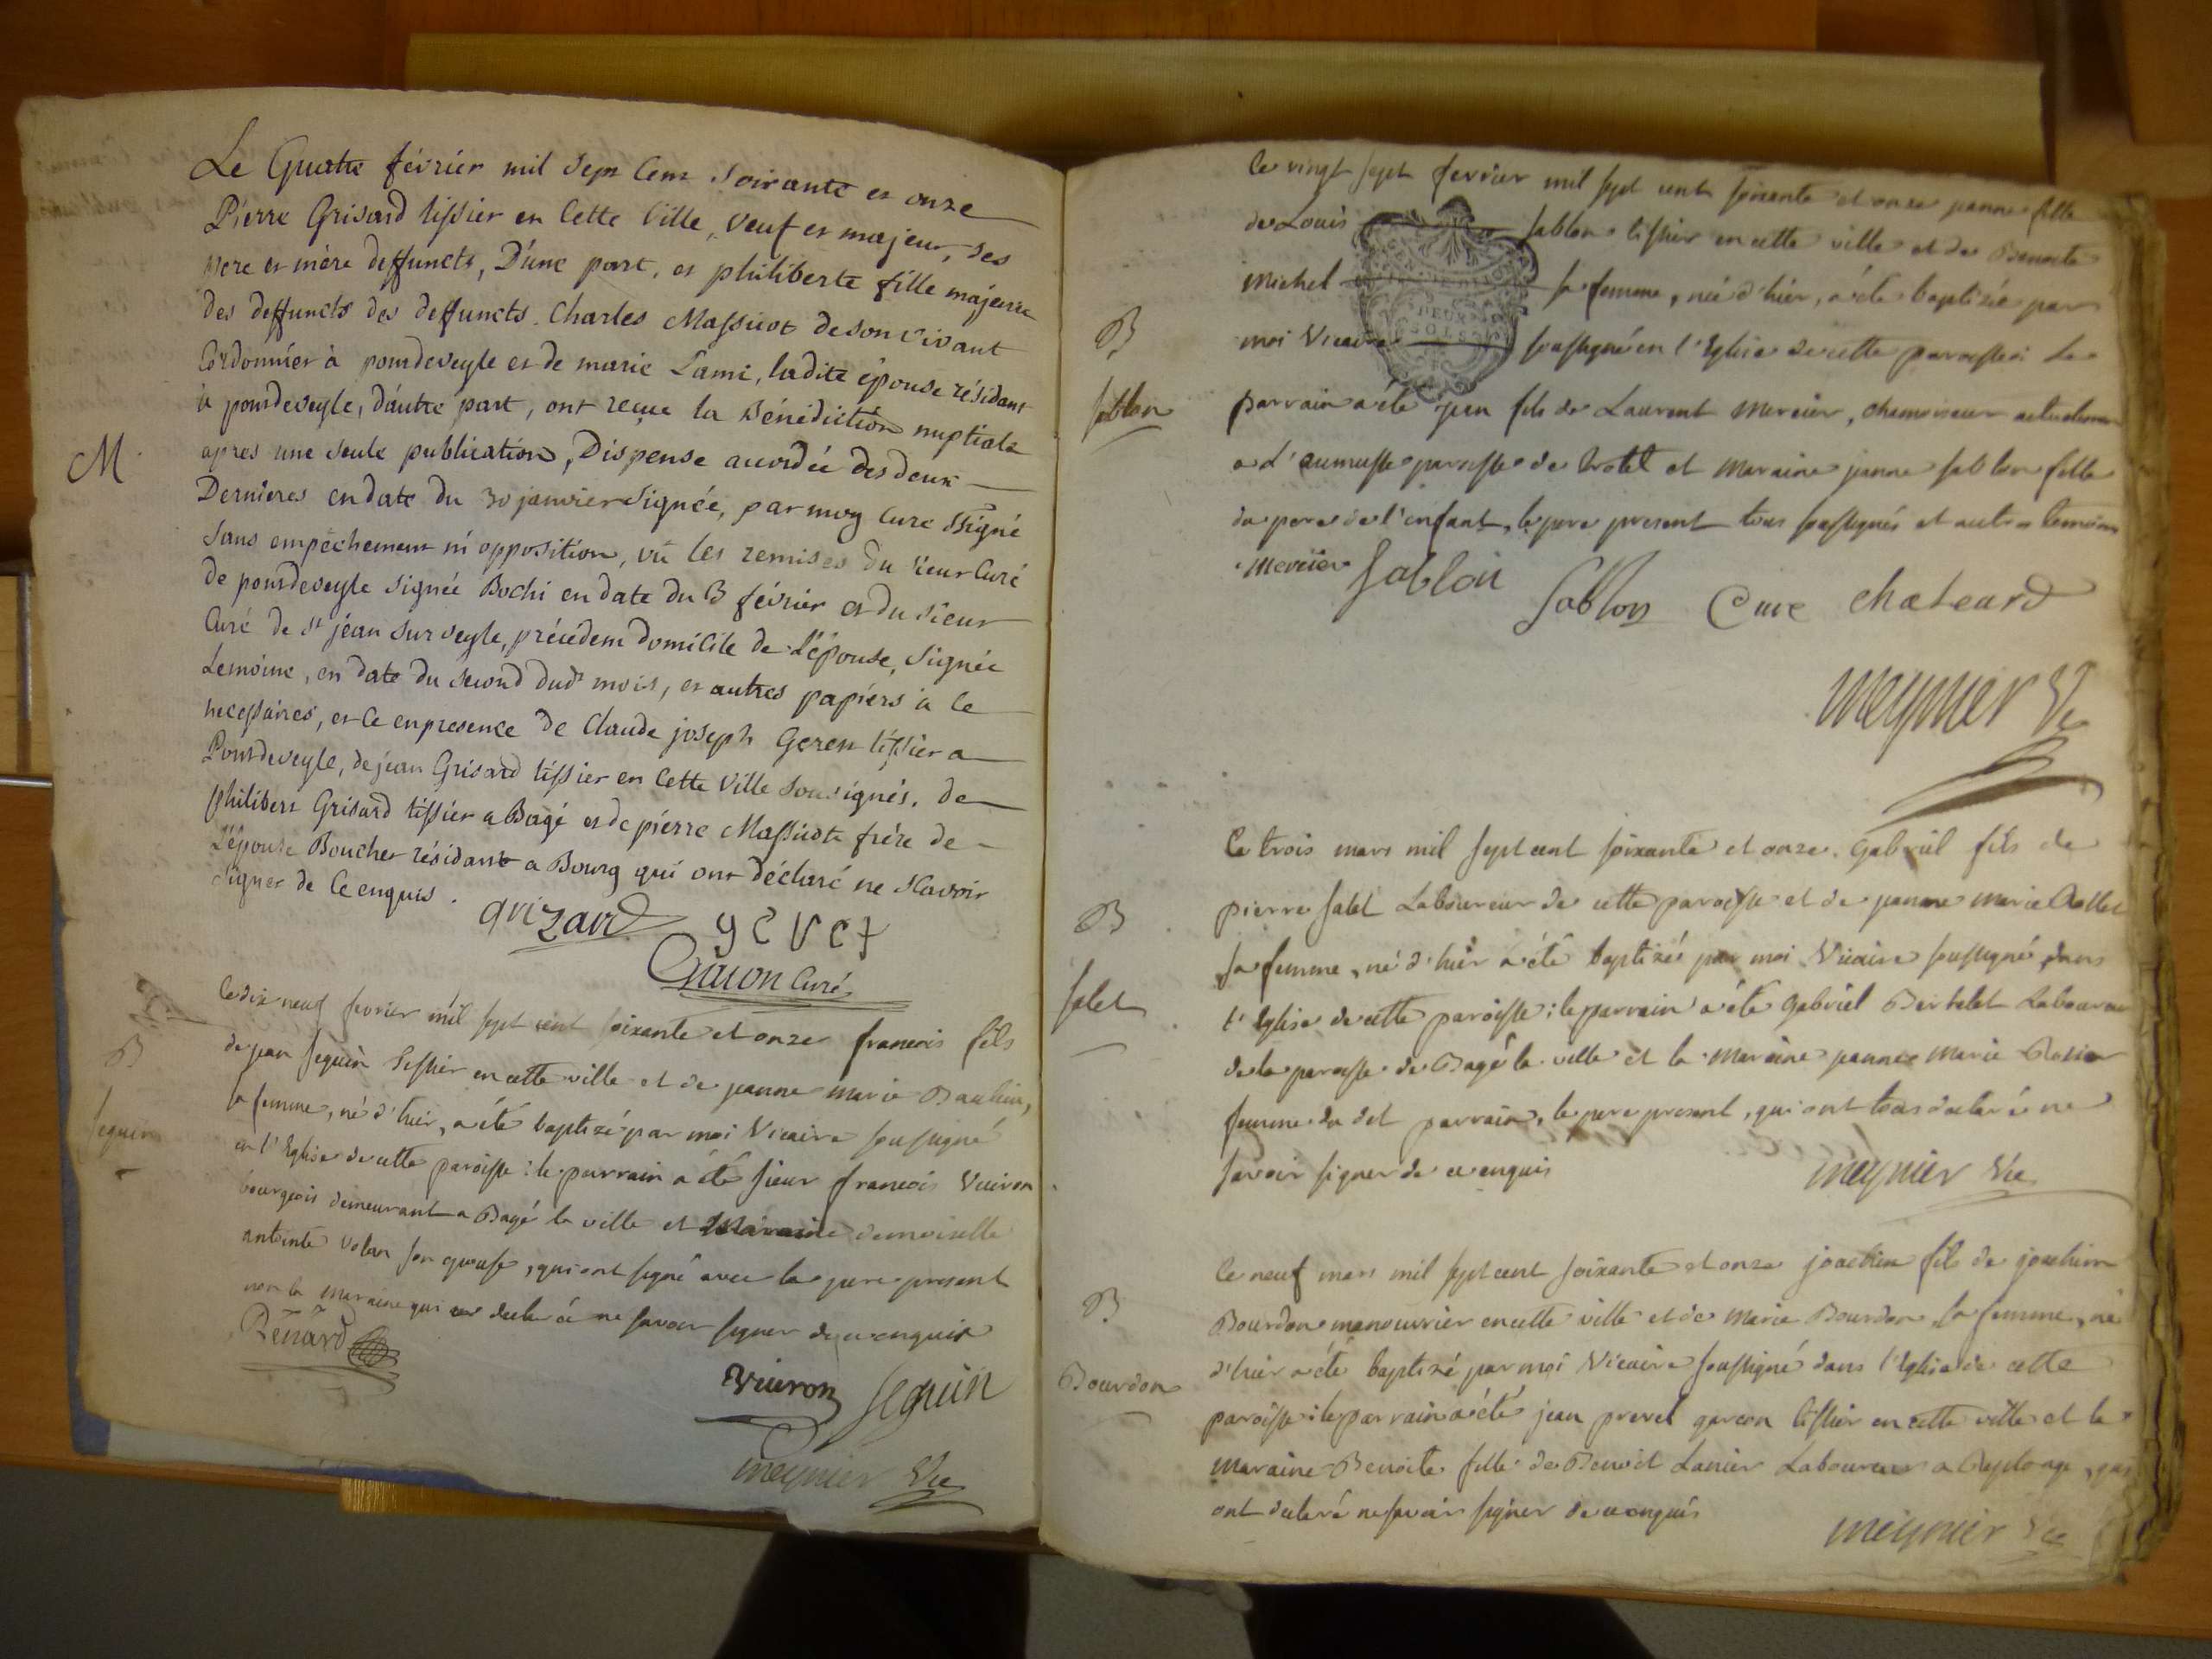 Le Quatre février mil Sept Cent Soixante et onze
Pierre Grisard tissier en Cette Ville, Veuf et majeur, ses
pere et mère deffuncts, D'une part, et philiberte fille majeure
des deffuncts des deffuncts Charles Massicot de son Vivant
Cordonnier à pontdeveyle et de marie Lami, ladite épouse résidant
à pontdeveyle, d'autre part, ont reçue la Bénédiction nuptiale
apres une seule publication, Dispense accordée des deux
Dernieres en date du 30 janvier signée, par moy Curé ssigné
sans empêchement ni opposition, vû les remises du sieur Curé
de pontdeveyle signée Bochi en date du 3 février et du sieur
Curé de st jéan sur veyle, précédent domicile de L'épouse, signée
Lemoine, en date du second dudt mois, et autres papiers à ce
necessaires, et ce en presence de Claude joseph Geret tissier a
Pontdeveyle, de jean Grisard tissier en Cette Ville soussignés, de
philibert Grisard tissier a Bagé et de pierre Massicot frére de
L'épouse Boucher résidant a Bourg qui ont déclaré ne scavoir
signer de ce enquis.
M
grizard
Curé
le dix neuf fevrier mil sept cent soixante et onze francois fils
de jean seguin tissier en cette ville et de janne marie Baulieu,
sa femme, né d'hier, a été baptizé par moi Vicaire soussigné
en l'Eglise de cette paroisse: le parrain a été sieur francois Vuiron
bourgeois demeurant a Bagé la ville et Maraine demoiselle
antointe volan son epouse, qui ont signé avec le pere present
non la maraine qui a declaré ne savoir signer de ce enquis
B
seguin
Renard
Vuiron seguin
meynier Vic
le vingt sept fevrier mil sept cent soixante et onze janne fille
de Louis sablon tissier en cette ville et de Benoite
Michel sa femme, née d'hier, a été baptizée par
moi Vicaire soussigné en l'Eglise de cette paroisse: Le
parrain a été jean fils de Laurent mercier, chamoiseur actuellement
a L'aumusse paroisse de Crotet et maraine janne sablon fille
du pere de l'enfant, le pere present tous soussignés et autres temoins
B
sablon
DEUX SOLS
mercier sablon sablon Cure chateard
meynier Vic
le trois mars mil sept cent soixante et onze. Gabriel fils de
pierre salet Laboureur de cette paroisse et de janne marie
sa femme, né d'hier a été baptizé par moi Vicaire soussigné dans
l'Eglise de cette paroisse; le parrain a été Gabriel Bertelet Laboureur
de la paroisse de Bagé la ville et la maraine janne marie
femme du dit parrain, le pere present, qui ont tous declaré ne
savoir signer de ce enquis
B
salet
meynier Vic
le neuf mars mil sept cent soixante et onze joachim fils de joachim
Bourdon manouvrier en cette ville et de marie Bourdon sa femme, né
d'hier a été baptizé par moi Vicaire soussigné dans l'Eglise de cette
paroisse: le parrain a été jean prevel garcon tissier en cette ville et la
maraine Benoite fille de Benoit Lanier Laboureur a Replonge, qui
ont declaré ne savoir signer de ce enquis
B
Bourdon
meynier Vic